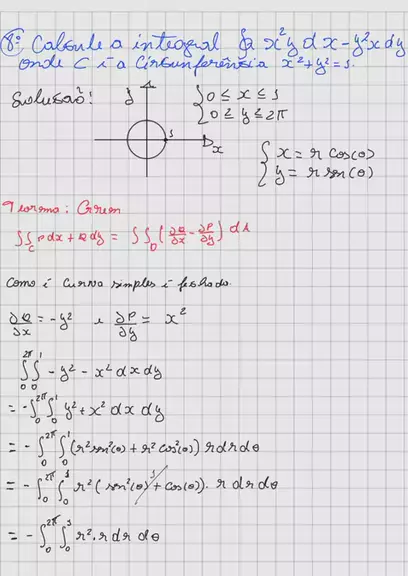 8º Calcule a integral ∮ x²y dx - y²x dy
onde C é a Circunferência x²+y²=1.
Solução:
y
{ 0 ≤ x ≤ 1
{ 0 ≤ y ≤ 2π
1
x
{ x = r cos(θ)
{ y = r sen(θ)
Teorema: Green
∫∫_C Pdx + Qdy = ∫∫_D (∂Q/∂x - ∂P/∂y) dA
Como é Curva simples é fechado.
∂Q/∂x = -y² e ∂P/∂y = x²
∫₀^2π ∫₀^1 -y² - x² dx dy
= -∫₀^2π ∫₀^1 y² + x² dx dy
= -∫₀^2π ∫₀^1 (r² sen²(θ) + r² cos²(θ)) r dr dθ
= -∫₀^2π ∫₀^1 r² (sen²(θ) + cos(θ)) · r dr dθ
1
= -∫₀^2π ∫₀^1 r² · r dr dθ